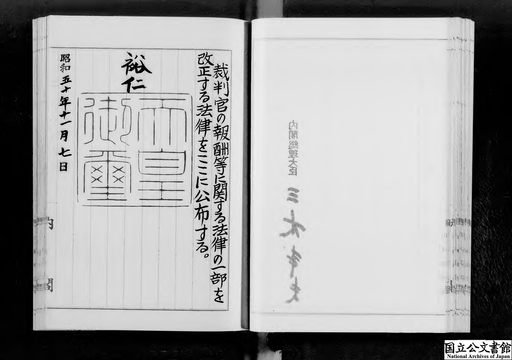 裁判官の報酬等に関する法律の一部を
改正する法律をここに公布する。
裕仁
天皇
御璽
昭和五十年十一月七日
内閣
内閣総理大臣
三木武夫
国立公文書館
National Archives of Japan